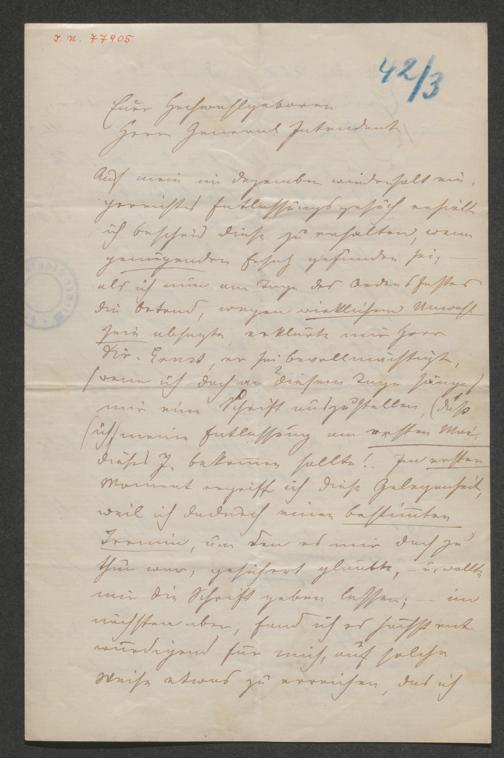 I. N. 77905
42/3
Euer Hochwohlgeboren
Herr General Intendant
Auf mein im Dezember wiederholt ein-
gereichtes Entlassungsgesuch erhielt
ich bescheid diese zu erhalten, wenn
genügenden Ersatz gefunden sei, –
als ich nun am Tage des Ordensfestes
die Ortrud, wegen wirklichem Unwohl
sein absagte erklärte mir Herr
Dir. Ernst, er sei bevollmächtigt,
(wenn ich doch an diesem Tage sänge)
mir eine Schrift auszustellen, (daß
ich) meine Entlassung am ersten Mai
dieses J. bekommen sollte! Im ersten
Moment ergriff ich diese Gelegenheit,
weil ich dadurch einen bestimmten
Termin, um den es mir doch zu
thun war, gesichert glaubte, – u. wollte
mir die Schrift geben lassen; – im
nächsten aber, fand ich es höchst ent
würdigend für mich, auf solche
Weise etwas zu erreichen, das ich